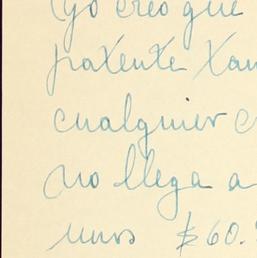 Yo creo que
patente tam
cualquier c
no llega a
unos $60.